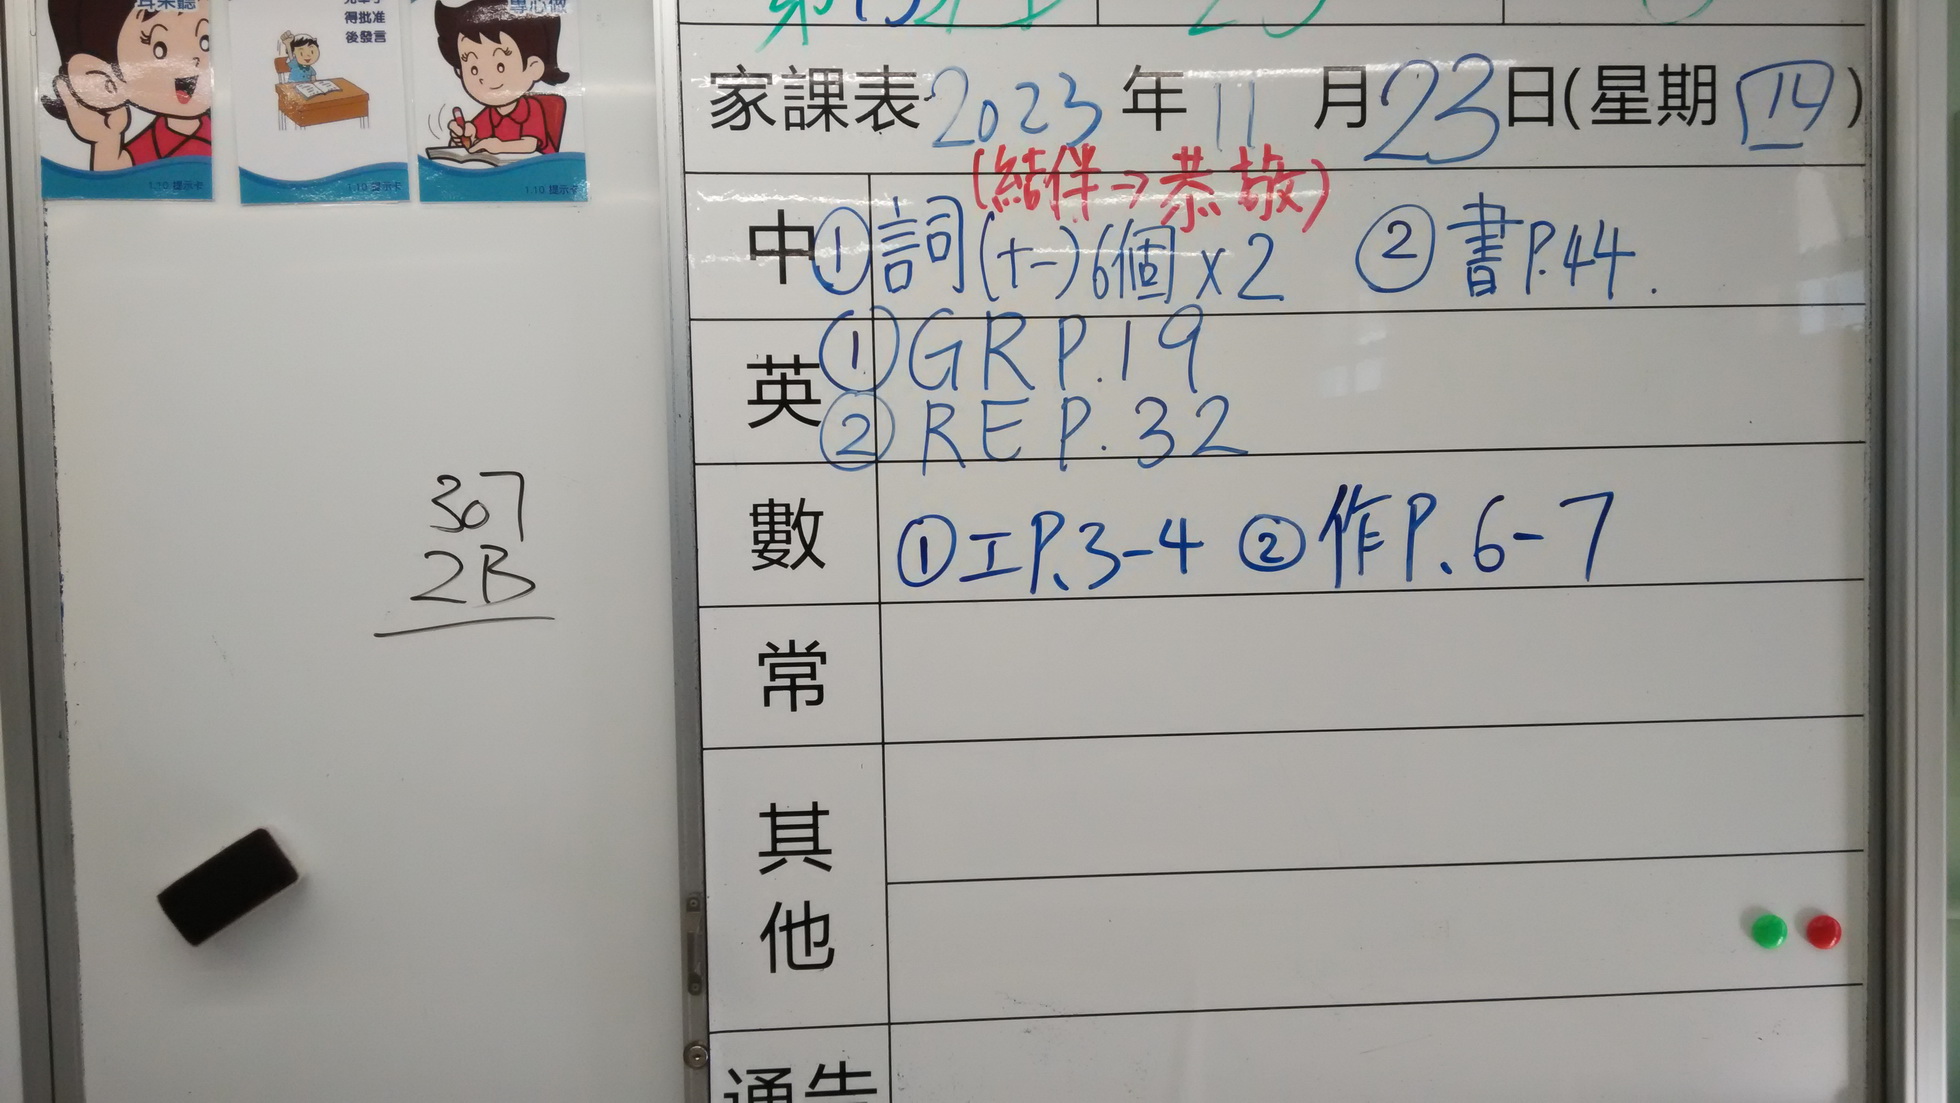 得批准
後發言
專心做
1.10 提示卡
1.10 提示卡
1.10 提示卡
家課表 2023 年 11 月 23 日(星期 四)
(結伴→恭敬)
中 ①詞(十一)6個×2 ②書P.44.
英 ①GR P.19
②RE P.32
數 ①工P.3-4 ②作P.6-7
常
其他
通告
307
2B